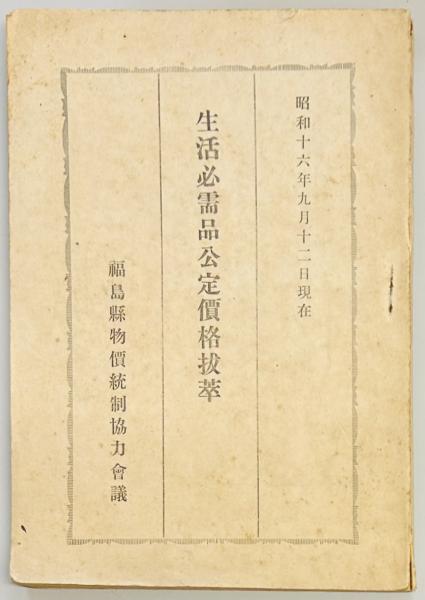 昭和十六年九月十二日現在
生活必需品公定價格拔萃
福島縣物價統制協力會議